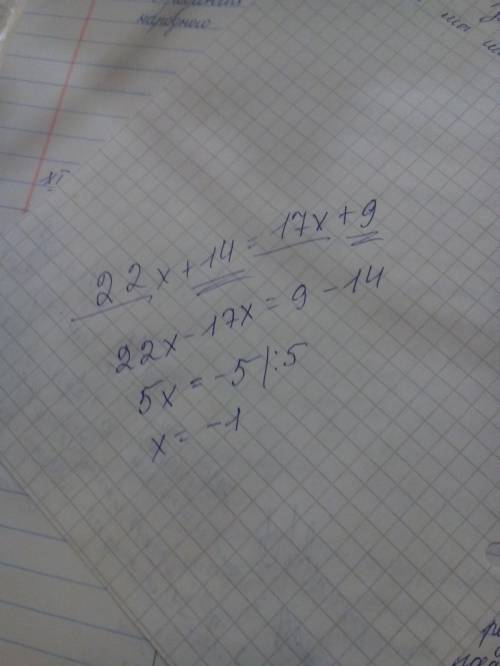 народного
мы
XI
22x+14=17x+9
22x-17x=9-14
5x=-5 |:5
x=-1